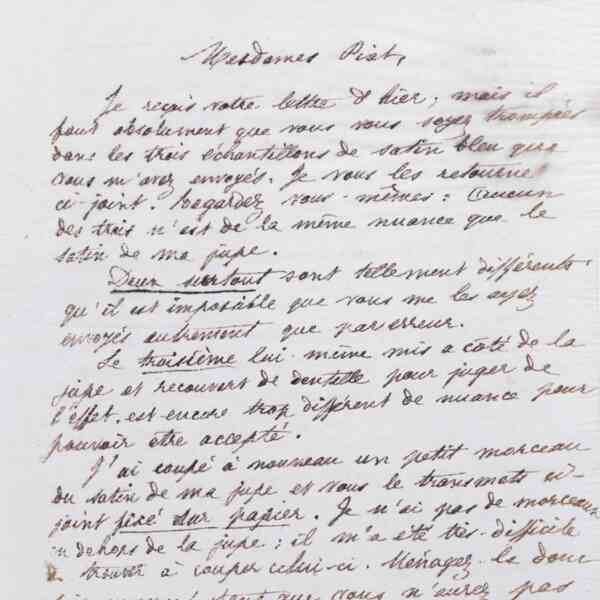 Mesdames Piat,
Je reçois votre lettre d'hier; mais il
faut absolument que vous vous soyez trompées
dans les trois échantillons de satin bleu que
vous m'avez envoyés. Je vous les retourne
ci-joint. Regardez vous-mêmes: Aucun
des trois n'est de la même nuance que le
satin de ma jupe.
Deux surtout sont tellement différents
qu'il est impossible que vous me les ayez
envoyés autrement que par erreur.
Le troisième lui-même mis a côté de la
jupe et recouvert de dentelle pour juger de
l'effet, est encore trop différent de nuance pour
pouvoir être accepté.
J'ai coupé à nouveau un petit morceau
du satin de ma jupe et vous le transmets ci-
joint fixé sur papier. Je n'ai pas de morceaux
en dehors de la jupe; il m'a été très-difficile
de trouver à couper celui-ci. Ménagez-le donc
que vous n'aurez pas